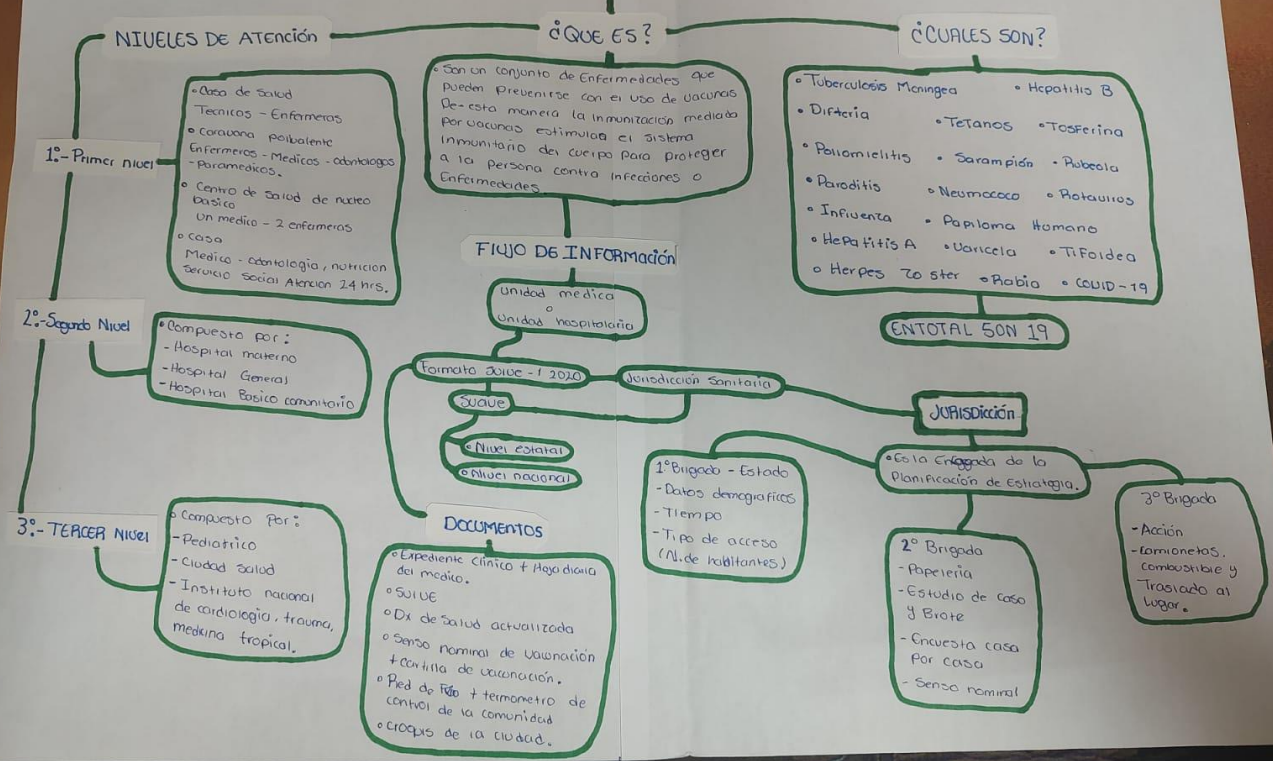 NIVELES DE ATENCIÓN
¿QUE ES?
¿CUALES SON?
1º.- Primer nivel
• Casa de Salud
Tecnicos - Enfermeras
• Caravana polbalente
Enfermeros - Medicos - odontologos
- Paramedicos.
• Centro de Salud de nucleo
basico
un medico - 2 enfermeras
• casa
Medico - odontologia, nutricion
Servicio Social Atencion 24 hrs.
2º.- Segundo Nivel
• Compuesto por:
- Hospital materno
- Hospital General
- Hospital Basico comunitario
3º.- TERCER NIVEL
• Compuesto Por:
- Pediatrico
- Ciudad Salud
- Instituto nacional
de cardiologia, trauma,
medicina tropical.
• Son un conjunto de Enfermedades que
pueden Prevenirse con el uso de vacunas
De esta manera la inmunización mediada
por vacunas estimulaa el sistema
inmunitario del cuerpo para proteger
a la persona contra infecciones o
Enfermedades
FLUJO DE INFORMACIÓN
unidad medica
o
unidad hospitalaria
Formato SUIVE - 1 2020
Jurisdicción Sanitaria
SUAVE
• Nivel estatal
• Nivel nacional
DOCUMENTOS
• Expediente clinico + Hoja diaria
del medico.
• SUIVE
• Dx de Salud actualizada
• Senso nominal de vacunación
+ cartilla de vacunación.
• Red de Frio + termometro de
control de la comunidad
• croquis de la ciudad.
• Tuberculosis Meningea • Hepatitis B
• Difteria • Tetanos • Tosferina
• Poliomielitis • Sarampión • Rubeola
• Paroditis • Neumococo • Rotavirus
• Influenza • Papiloma Humano
• Hepatitis A • Varicela • Tifoidea
• Herpes Zoster • Rabia • COVID-19
EN TOTAL SON 19
JURISDicción
• Es la Encargada de la
Planificación de Estrategia.
1º Brigada - Estado
- Datos demograficos
- Tiempo
- Tipo de acceso
(N. de habitantes)
2º Brigada
- Papeleria
- Estudio de caso
y Brote
- Encuesta casa
por casa
- Senso nominal
3º Brigada
- Acción
- camionetas,
combustible y
Traslado al
lugar.